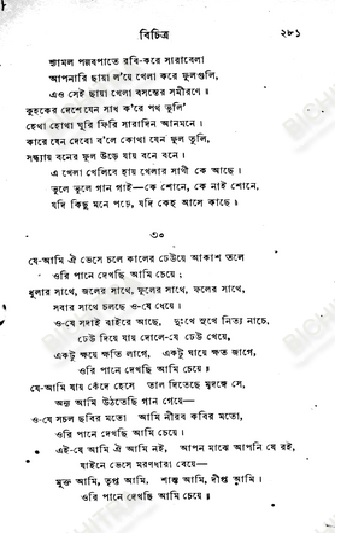 বিচিত্র ২৮১
শ্যামল পল্লবপাতে রবি-করে সারাবেলা
আপনারি ছায়া ল'য়ে খেলা করে ফুলগুলি,
এও সেই ছায়া খেলা বসন্তের সমীরণে।
কুহকের দেশে যেন সাধ ক'রে পথ ভুলি'
হেথা হোথা ঘুরি ফিরি সারাদিন আনমনে।
কারে যেন দেবো ব'লে কোথা যেন ফুল তুলি,
সন্ধ্যায় বনের ফুল উড়ে যায় বনে বনে।
এ খেলা খেলিবে হায় খেলার সাথী কে আছে।
ভুলে ভুলে গান গাই—কে শোনে, কে নাই শোনে,
যদি কিছু মনে পড়ে, যদি কেহ আসে কাছে।
৩০
যে-আমি ঐ ভেসে চলে কালের ঢেউয়ে আকাশ তলে
ওরি পানে দেখছি আমি চেয়ে;
ধুলার সাথে, জলের সাথে, ফুলের সাথে, ফলের সাথে,
সবার সাথে চলছে ও-যে ধেয়ে।
ও-যে সদাই বাইরে আছে, দুঃখে সুখে নিত্য নাচে,
ঢেউ দিয়ে যায় দোলে-যে ঢেউ খেয়ে,
একটু ক্ষয়ে ক্ষতি লাগে, একটু ঘায়ে ক্ষত জাগে,
ওরি পানে দেখছি আমি চেয়ে॥
যে-আমি যায় কেঁদে হেসে তাল দিতেছে মৃদঙ্গে সে,
অন্য আমি উঠতেছি গান গেয়ে—
ও-যে সচল ছবির মতো আমি নীরব কবির মতো,
ওরি পানে দেখছি আমি চেয়ে।
এই-যে আমি ঐ আমি নই, আপন মাঝে আপনি যে রই,
যাইনে ভেসে মরণধারা বেয়ে—
মুক্ত আমি, তৃপ্ত আমি, শান্ত আমি, দীপ্ত আমি।
ওরি পানে দেখছি আমি চেয়ে॥